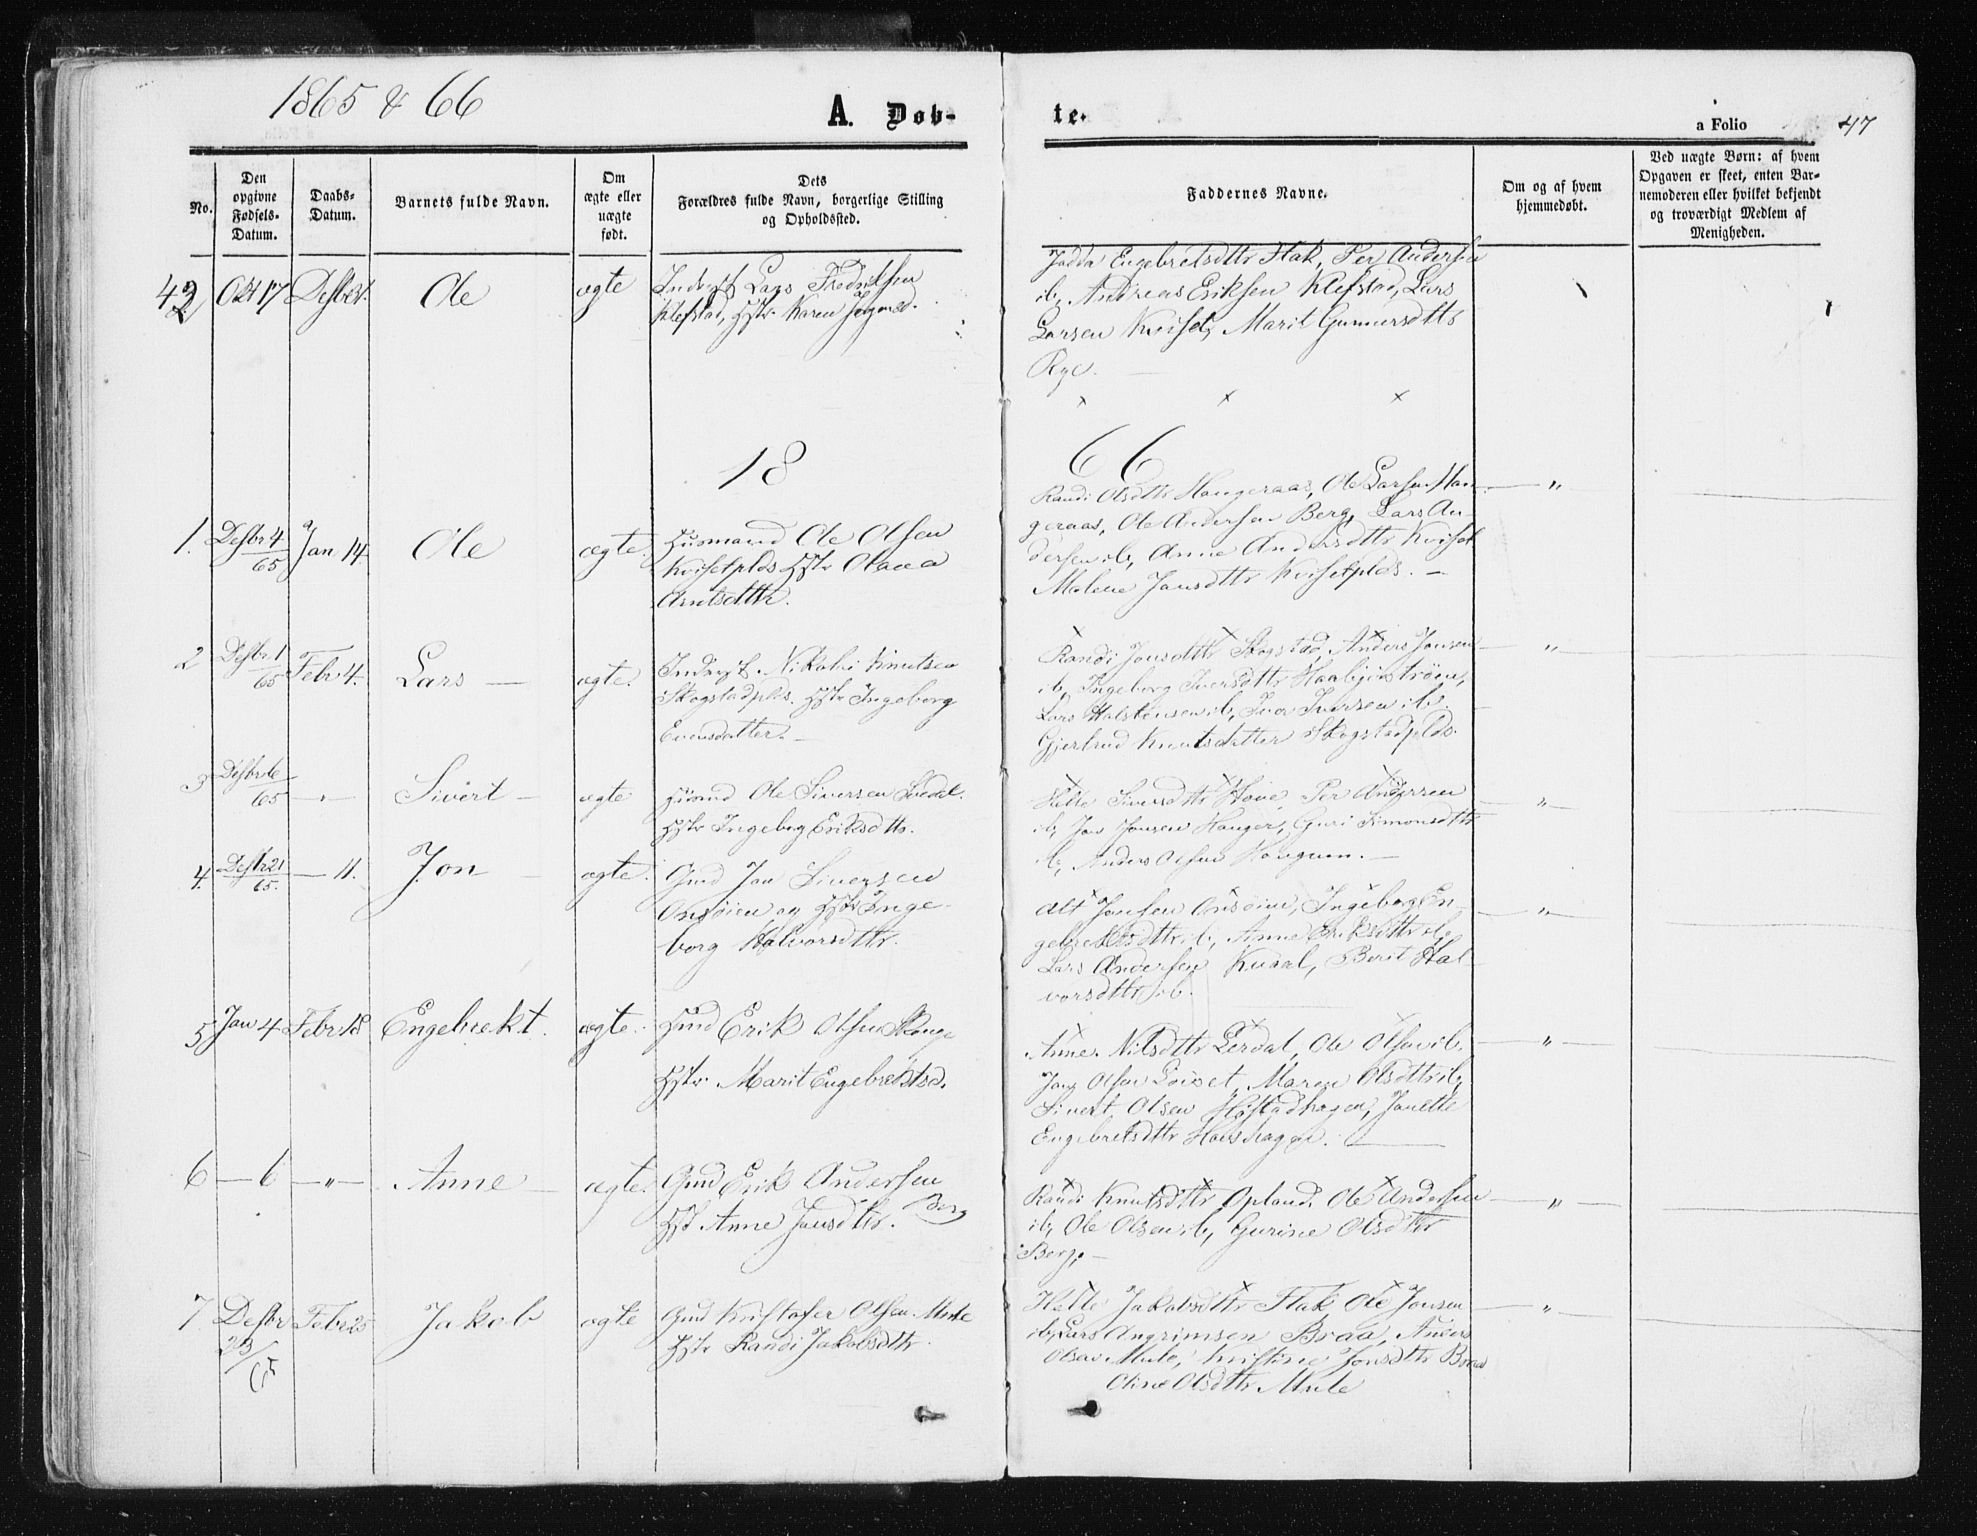 1865 & 66
A. Døb-
te.
a Folio
47
No.
Den
opgivne
Fødsels-
Datum.
Daabs-
Datum.
Barnets fulde Navn.
Om
ægte eller
uægte
født.
Dets
Forældres fulde Navn, borgerlige Stilling
og Opholdssted.
Faddernes Navne.
Om og af hvem
hjemmedøbt.
Ved uægte Børn: af hvem
Opgaven er skeet, enten Bar-
nemoderen eller hvilket bekjendt
og troværdigt Medlem af
Menigheden.
42 Okt 17 Ole ægte Lars Fredriksen
Klefstad, Hstr. Karen
Engebretsdttr Flak, Per Andersen
ib, Andreas Eriksen Klefstad, Lars
Larsen Kviset, Marit Gunnersdttr
Rye.
18 66
1. Desbr 4/65 Jan 14. Ole ægte. Husmand Ole Olsen
Kvisetplds Hstr Olaua
Arntsdttr.
Randi Olsdttr Haugeraas, Ole Larsen Hau-
geraas, Ole Andersen Berg, Lars An-
dersen ib, Anne Andersdttr Kviset
Malene Jansdttr Kvisetplds. —
2 Desbr 1/65 Febr 4. Lars — ægte. Nikolai Knutsen
Skogstadplds. Hstr Ingeborg
Evensdatter. —
Randi Jonsdttr Skogstad, Anders Jonsen
ib, Ingeborg Iversdttr
Lars Halstensen ib, Iver Iversen ib.
Gjertrud Knutsdatter Skogstadplds.
3 Desbr 6/65 — „ — Sivert — ægte Husmd Ole Siversen
Hstr Ingebog Eriksdttr.
Siversdttr Per Andersen
ib, Jon Jonsen Hauger, Guri Simonsdttr
ib, Anders Olsen Haugum. —
4. Desbr 21/65. — 11. Jon — ægte. Gmd Jon Siversen
Onsøien og Hstr Inge-
borg Halvorsdttr.
Jonsen Onsøien, Ingeborg En-
gebretsdttr ib, Anne Eriksdttr ib,
Lars Andersen Kusal, Berit Hal-
vorsdttr ib.
5 Jan 4 Febr 18 Engebrekt. ægte. Hmd Erik Olsen
Hstr. Marit Engebrektsd.
Anne Nilsdttr Lerdal, Ole Olsen ib.
Jon Olsen Maren Olsdttr ib,
Sivert Olsen Høistadhagen, Janette
Engebretsdttr
6 — 6 — „ — Anne — ægte. Gmd Erik Andersen
Hst. Anne Jansdttr. Berg
Randi Knutsdttr Opland. Ole Andersen
ib, Ole Olsen ib, Gurine Olsdttr
Berg. —
7. Desbr 23/65 Febr 25 Jakob ægte Gmd Kristofer Olsen Mule
Hstr Randi Jakobsdttr.
Jakobsdttr Flak, Ole Jonsen
ib, Lars Angrimsen Braa, Anders
Olsen Mule, Kristine Jonsdttr Braa
Oline Olsdttr Mule